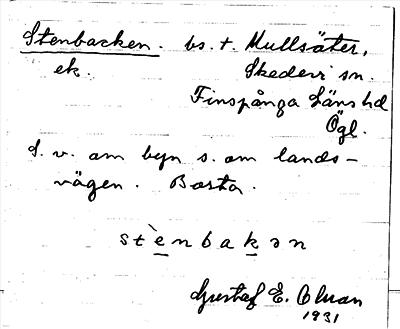 Stenbacken. bs. t. Mullsäter,
ek. Skedevi sn.
Finspånga Läns hd
Ögl.
S. v. om byn s. om lands-
vägen. Borta.
stènbakən
Gustaf E. Olman
1931